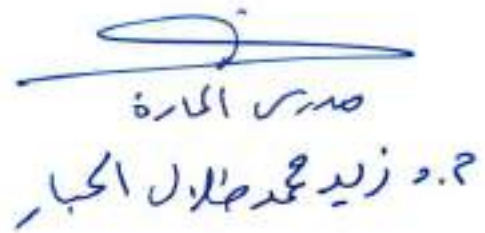 مدرس المادة
م.د زيد محمد طلال الجبار